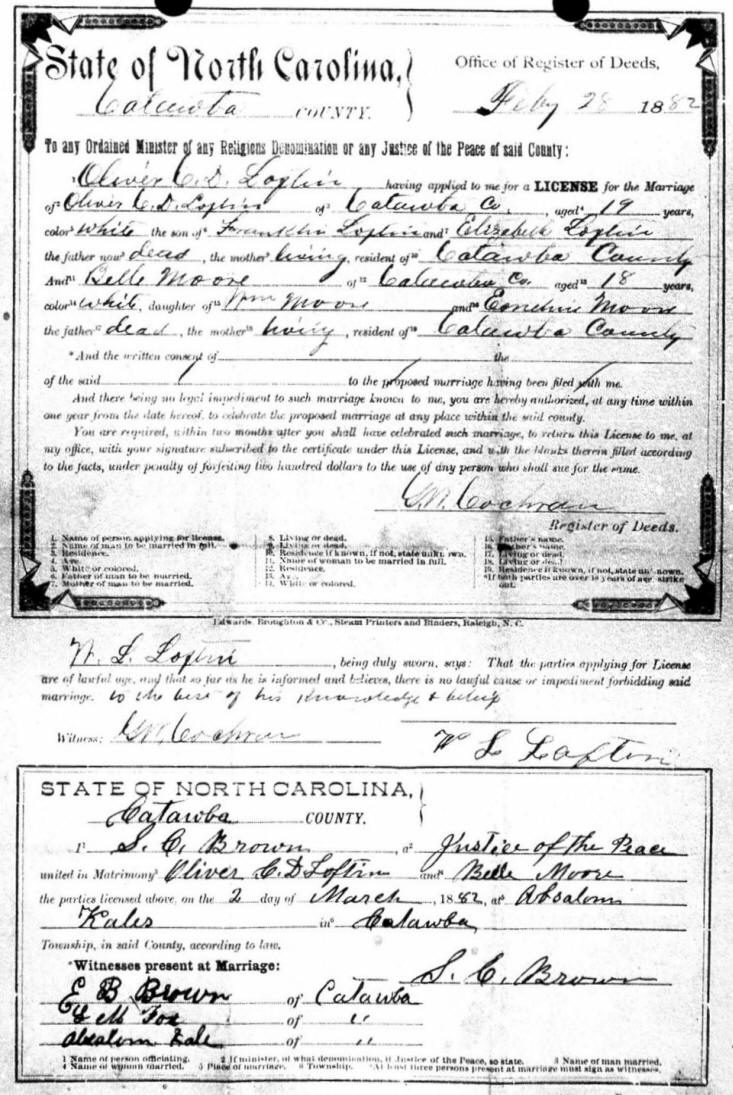 State of North Carolina,
Office of Register of Deeds,
Catawba COUNTY.
Feby 28 1882
To any Ordained Minister of any Religious Denomination or any Justice of the Peace of said County:
Oliver C. D. Loftin having applied to me for a LICENSE for the Marriage
of² Oliver C. D. Loftin of³ Catawba Co, aged⁴ 19 years,
color⁵ white the son of⁶ Franklin Loftin and⁷ Elizabeth Loftin
the father now⁸ dead, the mother⁹ living, resident of¹⁰ Catawba County
And¹¹ Belle Moore of¹² Catawba Co. aged¹³ 18 years,
color¹⁴ white, daughter of¹⁵ Wm Moore and¹⁶ Moore
the father¹⁷ dead, the mother¹⁸ living, resident of¹⁹ Catawba County
*And the written consent of the
of the said to the proposed marriage having been filed with me.
And there being no legal impediment to such marriage known to me, you are hereby authorized, at any time within
one year from the date hereof, to celebrate the proposed marriage at any place within the said county.
You are required, within two months after you shall have celebrated such marriage, to return this License to me, at
my office, with your signature subscribed to the certificate under this License, and with the blanks therein filled according
to the facts, under penalty of forfeiting two hundred dollars to the use of any person who shall sue for the same.
G.M. Cochran
Register of Deeds.
1. Name of person applying for license.
2. Name of man to be married in full.
3. Residence.
4. Age.
5. White or colored.
6. Father of man to be married.
7. Mother of man to be married.
8. Living or dead.
9. Living or dead.
10. Residence if known, if not, state unknown.
11. Name of woman to be married in full.
12. Residence.
13. Age.
14. White or colored.
15. Father's name.
16. Mother's name.
17. Living or dead.
18. Living or dead.
19. Residence if known, if not, state unknown.
*If both parties are over 18 years of age strike
out.
Edwards, Broughton & Co., Steam Printers and Binders, Raleigh, N. C.
W. L. Loftin, being duly sworn, says: That the parties applying for License
are of lawful age, and that so far as he is informed and believes, there is no lawful cause or impediment forbidding said
marriage. to the best of his knowledge & belief
Witness: G.M. Cochran
W L Loftin
STATE OF NORTH CAROLINA,
Catawba COUNTY.
I¹ S. C. Brown, a² Justice of the Peace
united in Matrimony³ Oliver C. D Loftin and⁴ Belle Moore
the parties licensed above, on the 2 day of March, 1882, at⁵ Absalom
Kales in⁶ Catawba
Township, in said County, according to law.
S. C. Brown
*Witnesses present at Marriage:
E B Brown of Catawba
M Fox of "
Absalom Kale of "
1 Name of person officiating. 2 If minister, of what denomination, if Justice of the Peace, so state. 3 Name of man married.
4 Name of woman married. 5 Place of marriage. 6 Township. *At least three persons present at marriage must sign as witnesses.